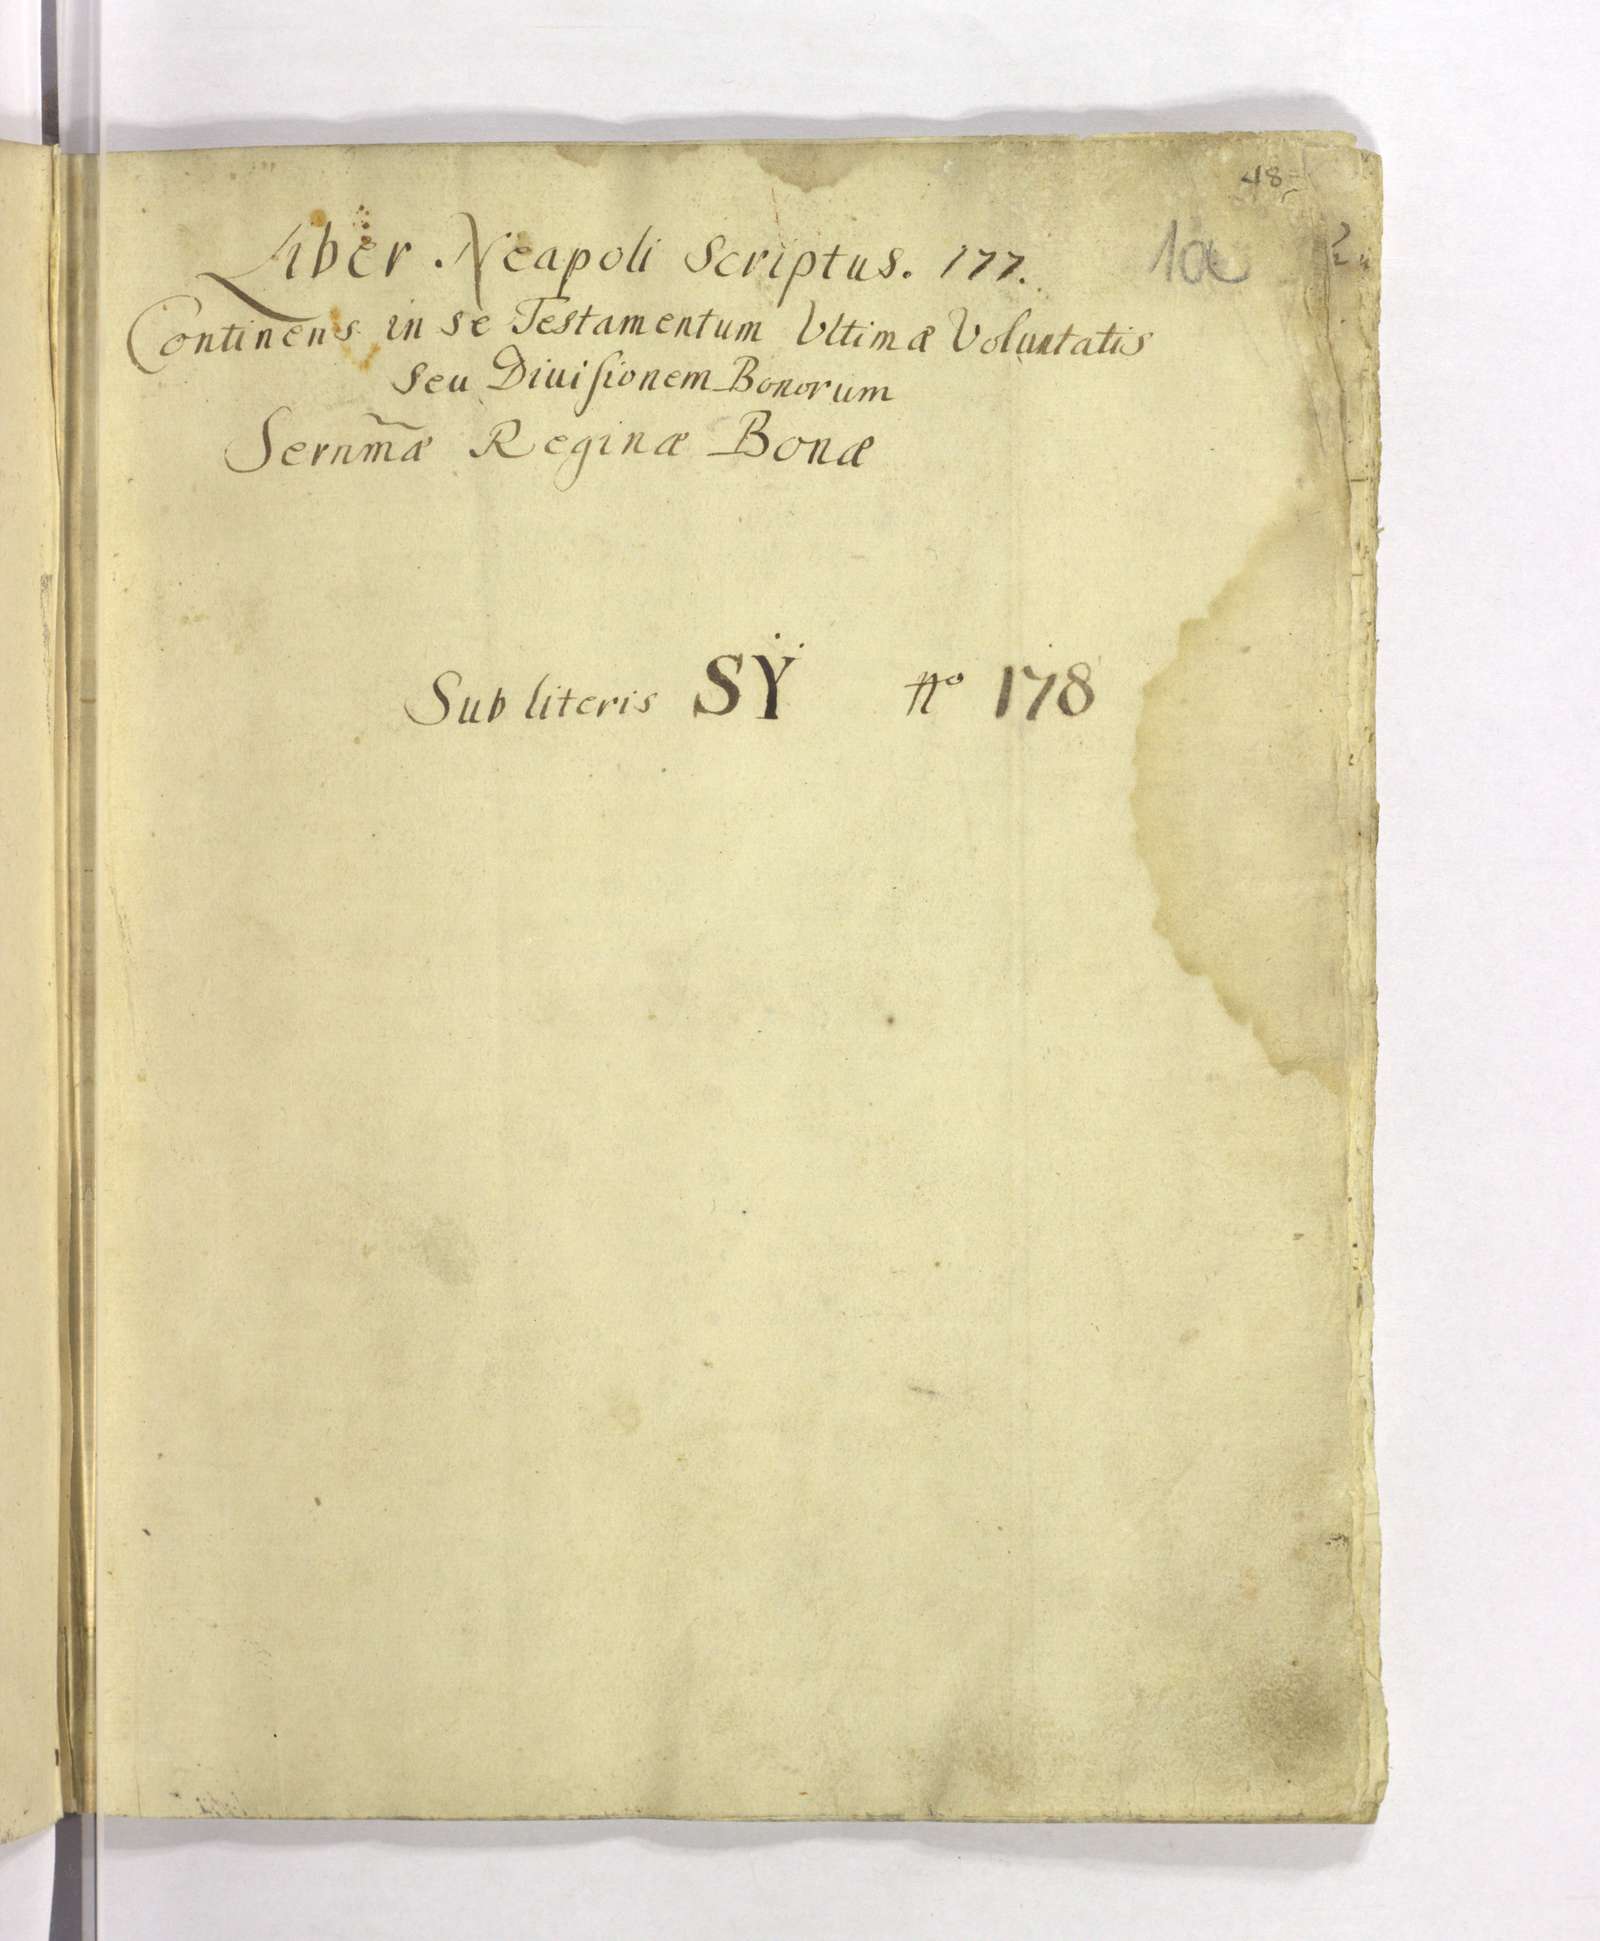 48
Liber Neapoli Scriptus. 177. 1a
Continens in se Testamentum Ultimæ Voluntatis
seu Diuisionem Bonorum
Sernm̃æ Reginæ Bonæ
Sub literis SY no 178